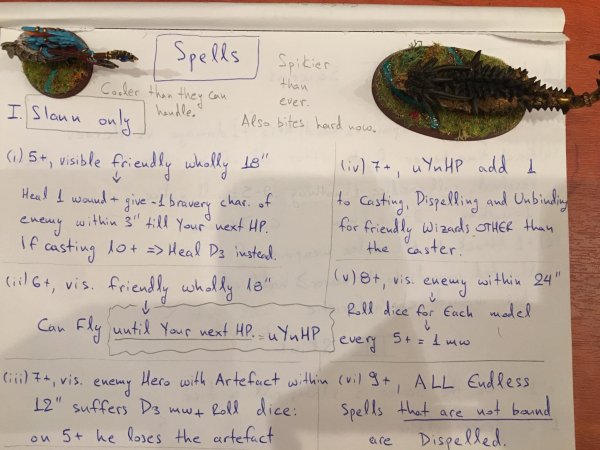 Spells
Cooler than they can
handle.
Spikier
than
ever.
Also bites hard now.
I. Slann only
(i) 5+, visible friendly wholly 18"
Heal 1 wound + give -1 bravery char. of
enemy within 3" till Your next HP.
If casting 10+ => Heal D3 instead.
(ii) 6+, vis. friendly wholly 18"
Can Fly until Your next HP. = uYnHP
(iii) 7+, vis. enemy Hero with Artefact within
12" suffers D3 mw + Roll dice:
on 5+ he loses the artefact
(iv) 7+, uYnHP add 1
to Casting, Dispelling and Unbinding
for friendly Wizards OTHER than
the caster.
(v) 8+, vis. enemy within 24"
Roll dice for Each model
every 5+ = 1 mw
(vi) 9+, ALL Endless
Spells that are not bound
are Dispelled.